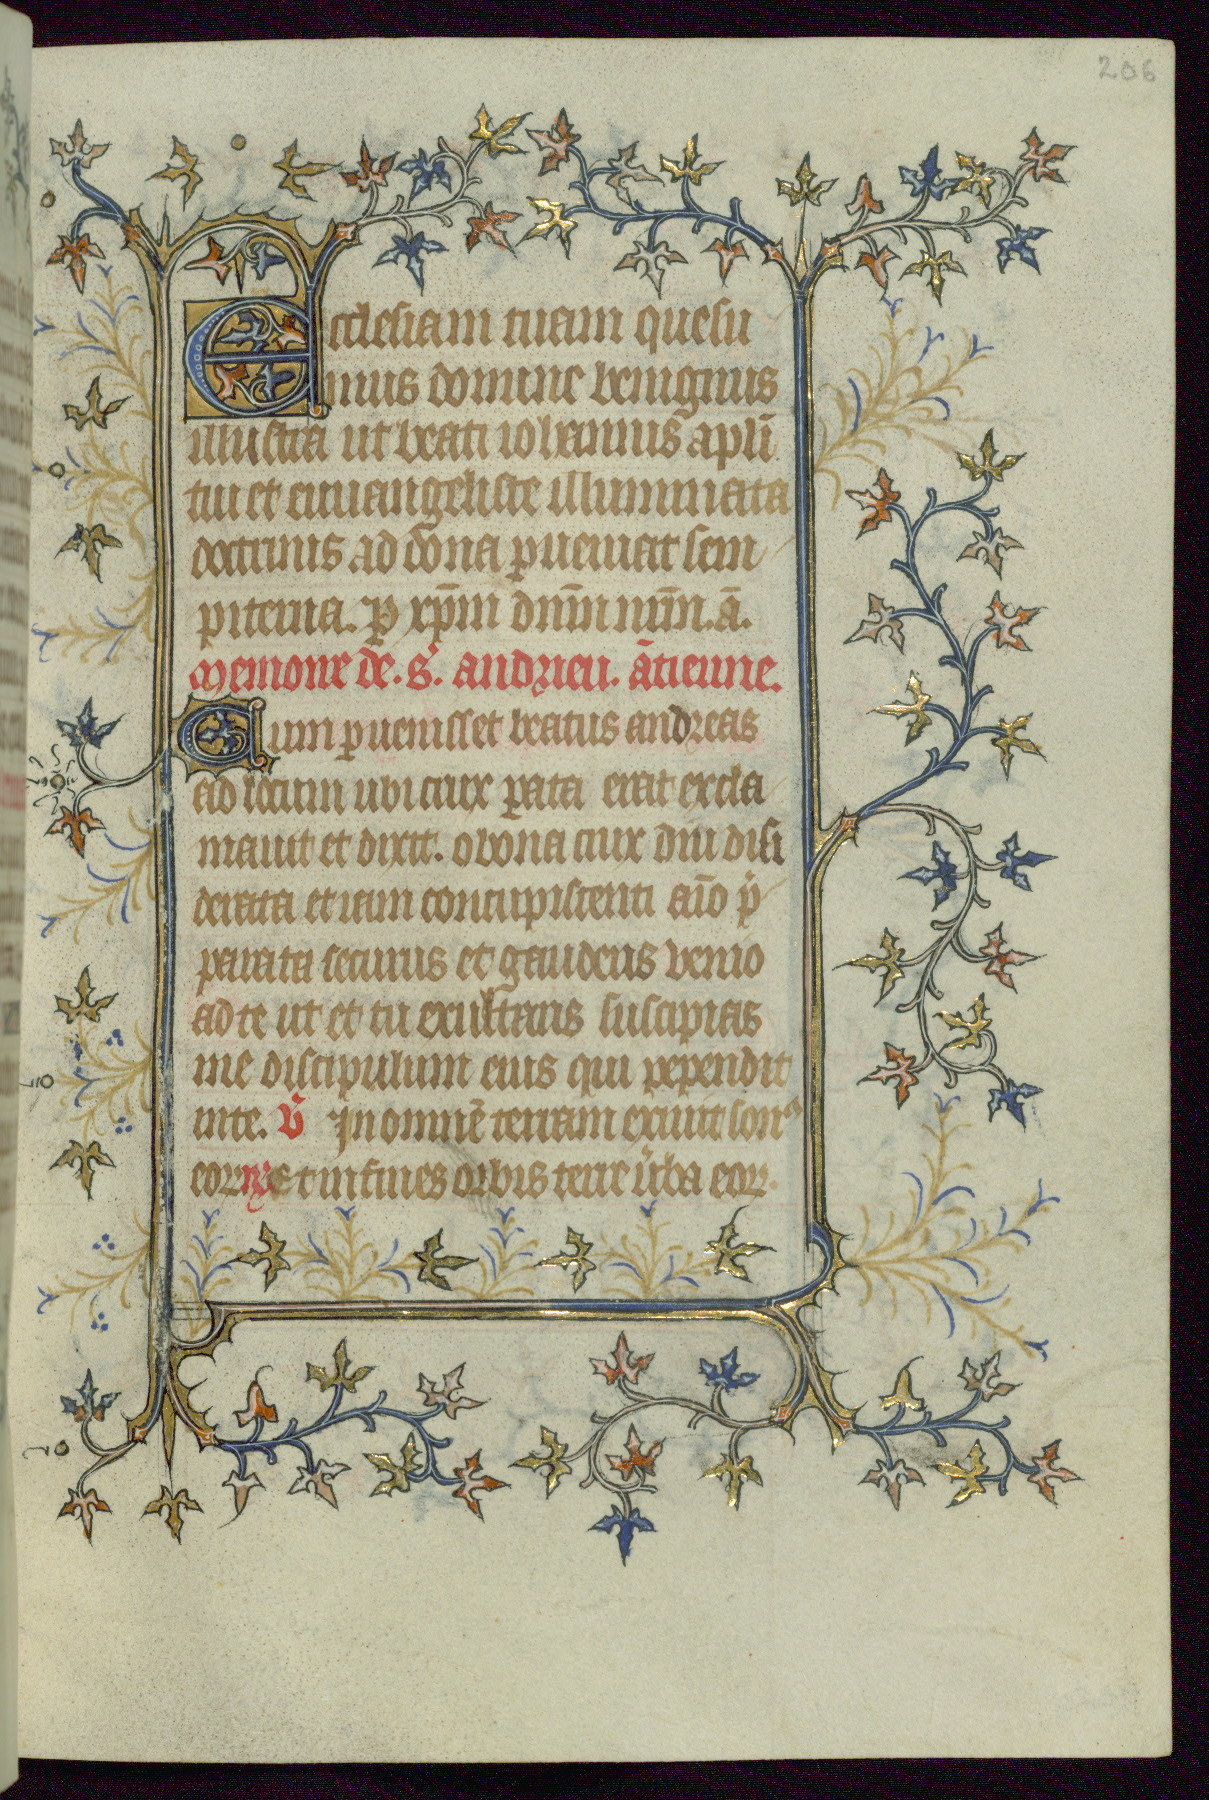 206
Ecclesiam tuam quesu
mus domine benignus
illustra ut beati iohannis apl̄i
tui et euuangeliste illuminata
doctrinis ad dona ꝑueniat sem
piterna. ꝑ xp̄m dn̄m nr̄m. ā.
Memoire de. s. andrieu. ātienne.
Cum ꝑuenisset beatus andreas
ad locum ubi crux ꝑata erat excla
mauit et dixit. o bona crux diu desi
derata et iam concupiscenti aīo p̄
parata securus et gaudens venio
ad te ut et tu exultans suscipias
me discipulum eius qui pependit
in te. v̄ In omnē terram exiuit sonꝰ
eoꝝ ℟ Et in fines orbis terre ūba eoꝝ.